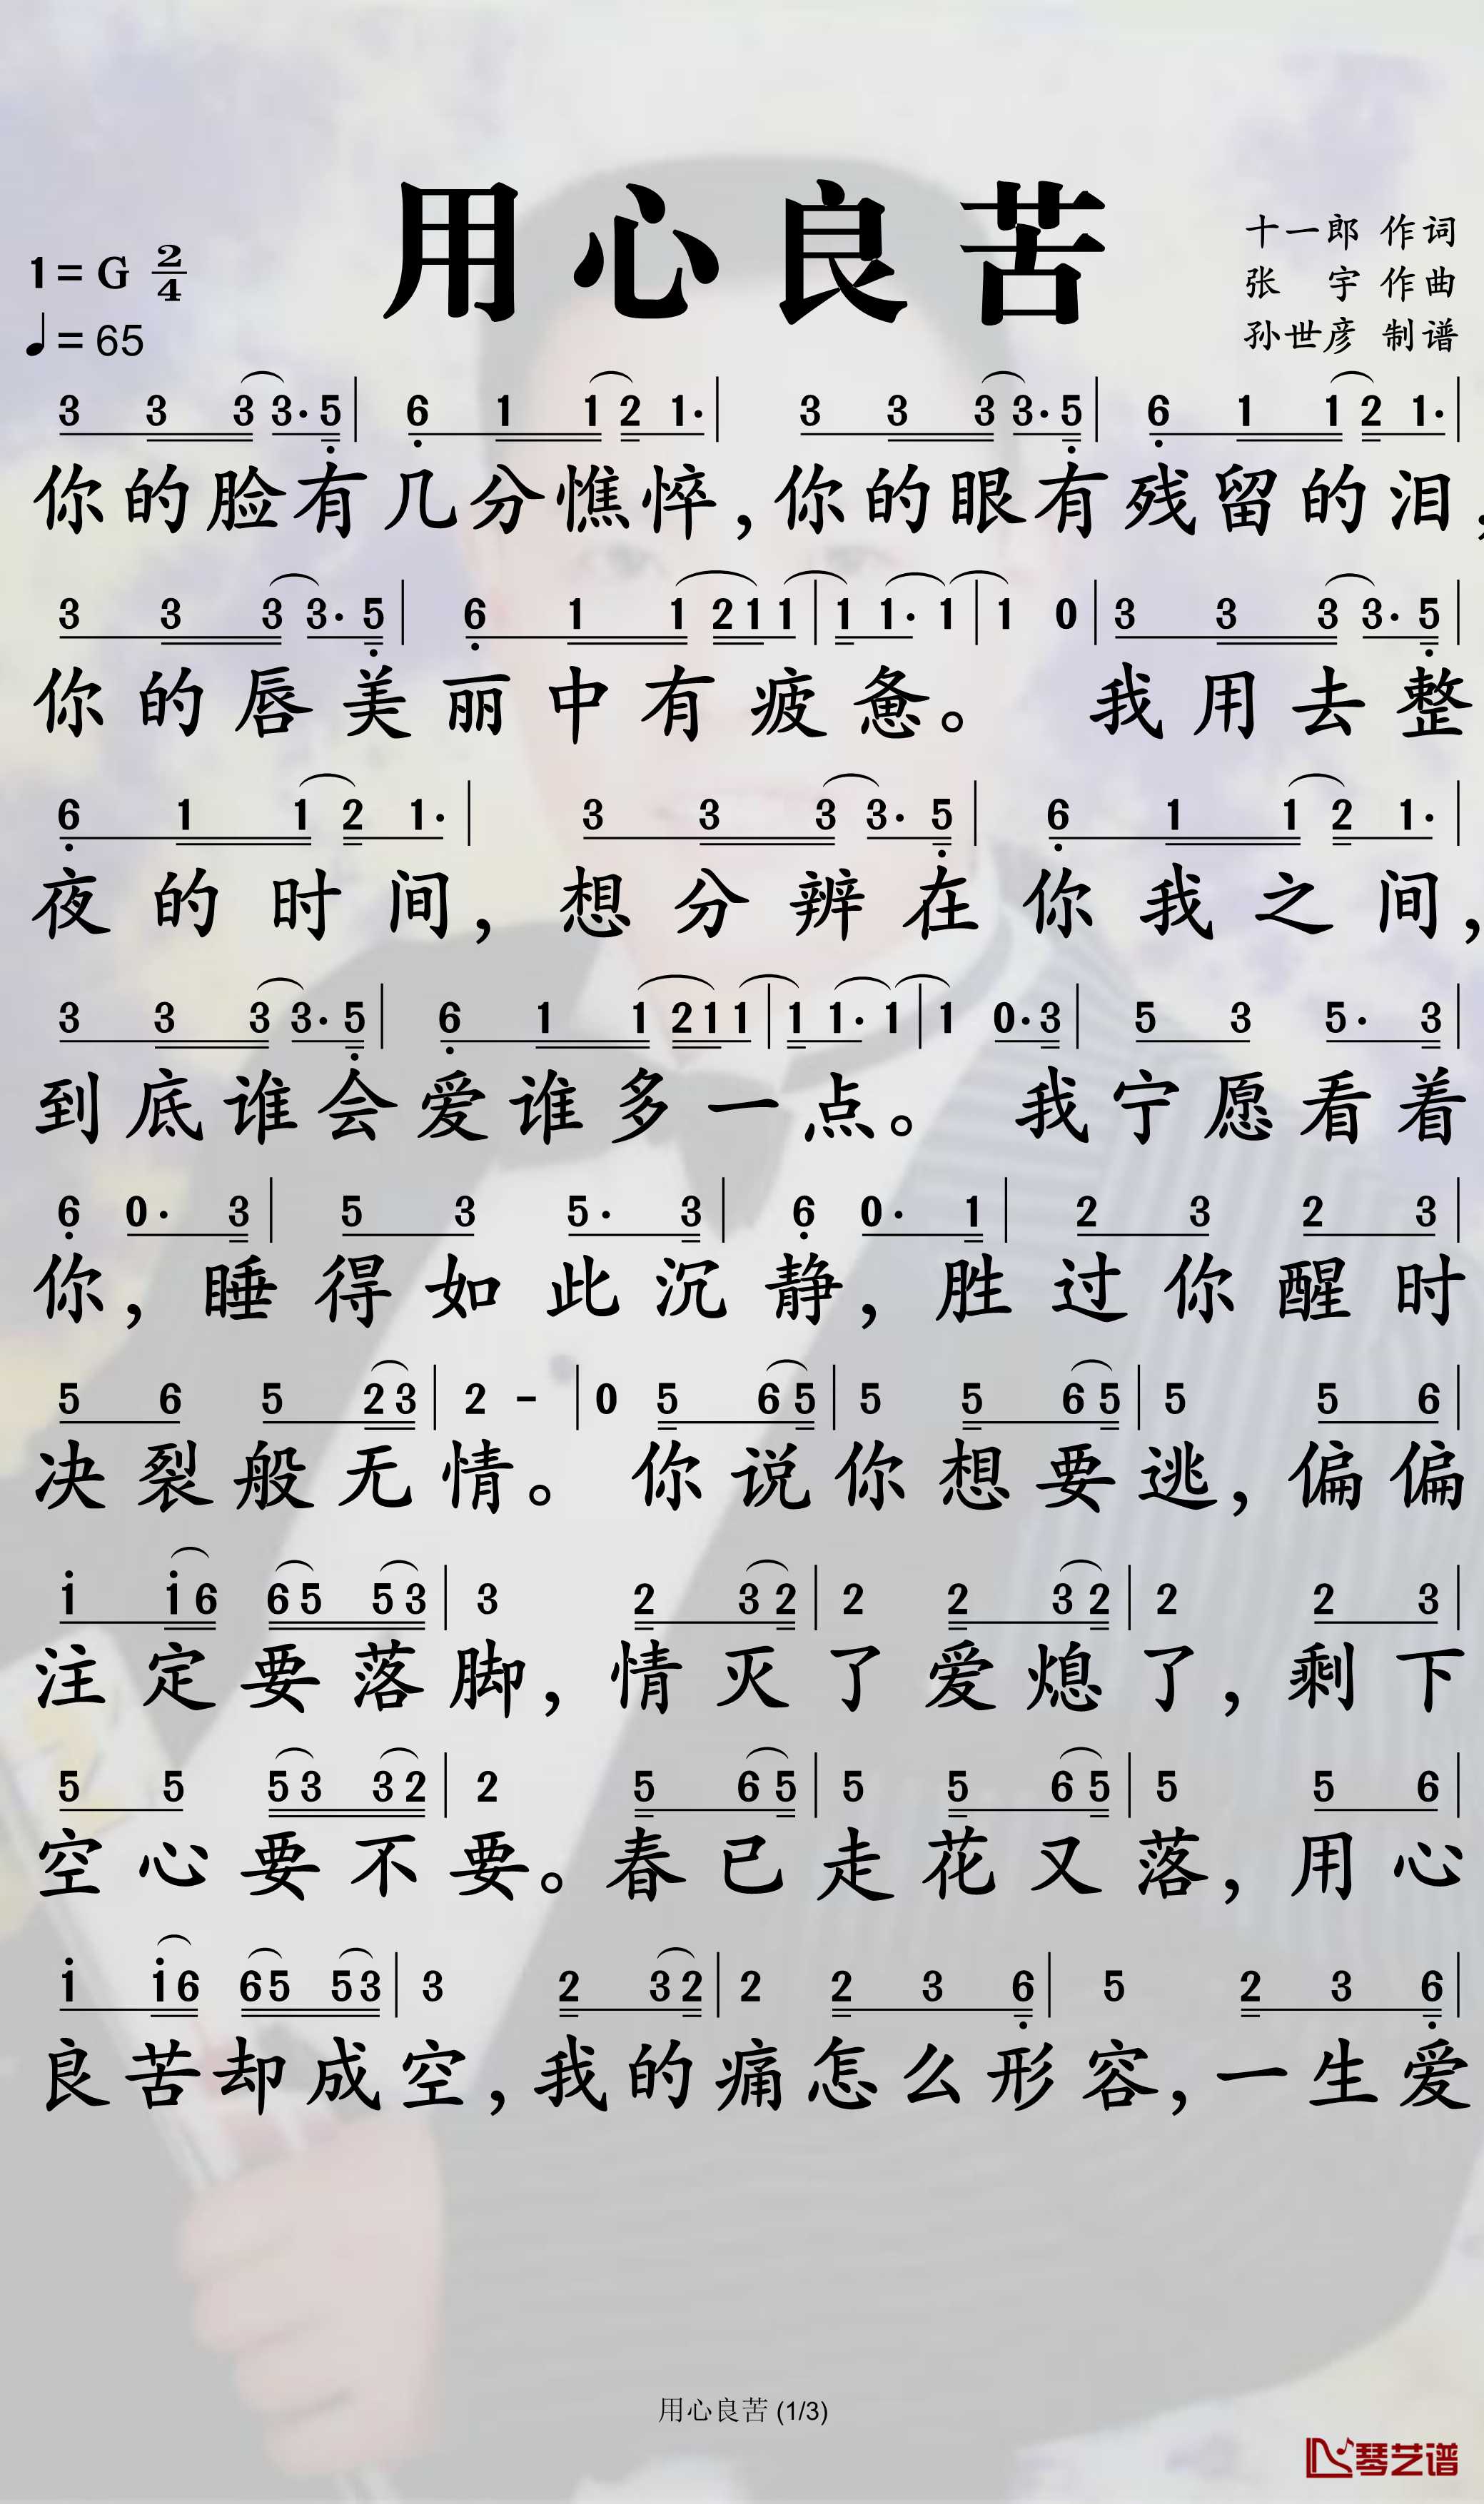 用心良苦
1=G 2/4
♩=65
十一郎 作词
张 宇 作曲
孙世彦 制谱
3 3 3 3· 5 | 6 1 1 2 1· | 3 3 3 3· 5 | 6 1 1 2 1· |
你的脸有几分憔悴,你的眼有残留的泪,
3 3 3 3· 5 | 6 1 1 2 1 1 | 1 1· 1 | 1 0 | 3 3 3 3· 5 |
你的唇美丽中有疲惫。 我用去整
6 1 1 2 1· | 3 3 3 3· 5 | 6 1 1 2 1· |
夜的时间,想分辨在你我之间,
3 3 3 3· 5 | 6 1 1 2 1 1 | 1 1· 1 | 1 0· 3 | 5 3 5· 3 |
到底谁会爱谁多一点。 我宁愿看着
6 0· 3 | 5 3 5· 3 | 6 0· 1 | 2 3 2 3 |
你,睡得如此沉静,胜过你醒时
5 6 5 2 3 | 2 - | 0 5 6 5 | 5 5 6 5 | 5 5 6 |
决裂般无情。你说你想要逃,偏偏
i i 6 6 5 5 3 | 3 2 3 2 | 2 2 3 2 | 2 2 3 |
注定要落脚,情灭了爱熄了,剩下
5 5 5 3 3 2 | 2 5 6 5 | 5 5 6 5 | 5 5 6 |
空心要不要。春已走花又落,用心
i i 6 6 5 5 3 | 3 2 3 2 | 2 2 3 6 | 5 2 3 6 |
良苦却成空,我的痛怎么形容,一生爱
用心良苦 (1/3)
琴艺谱